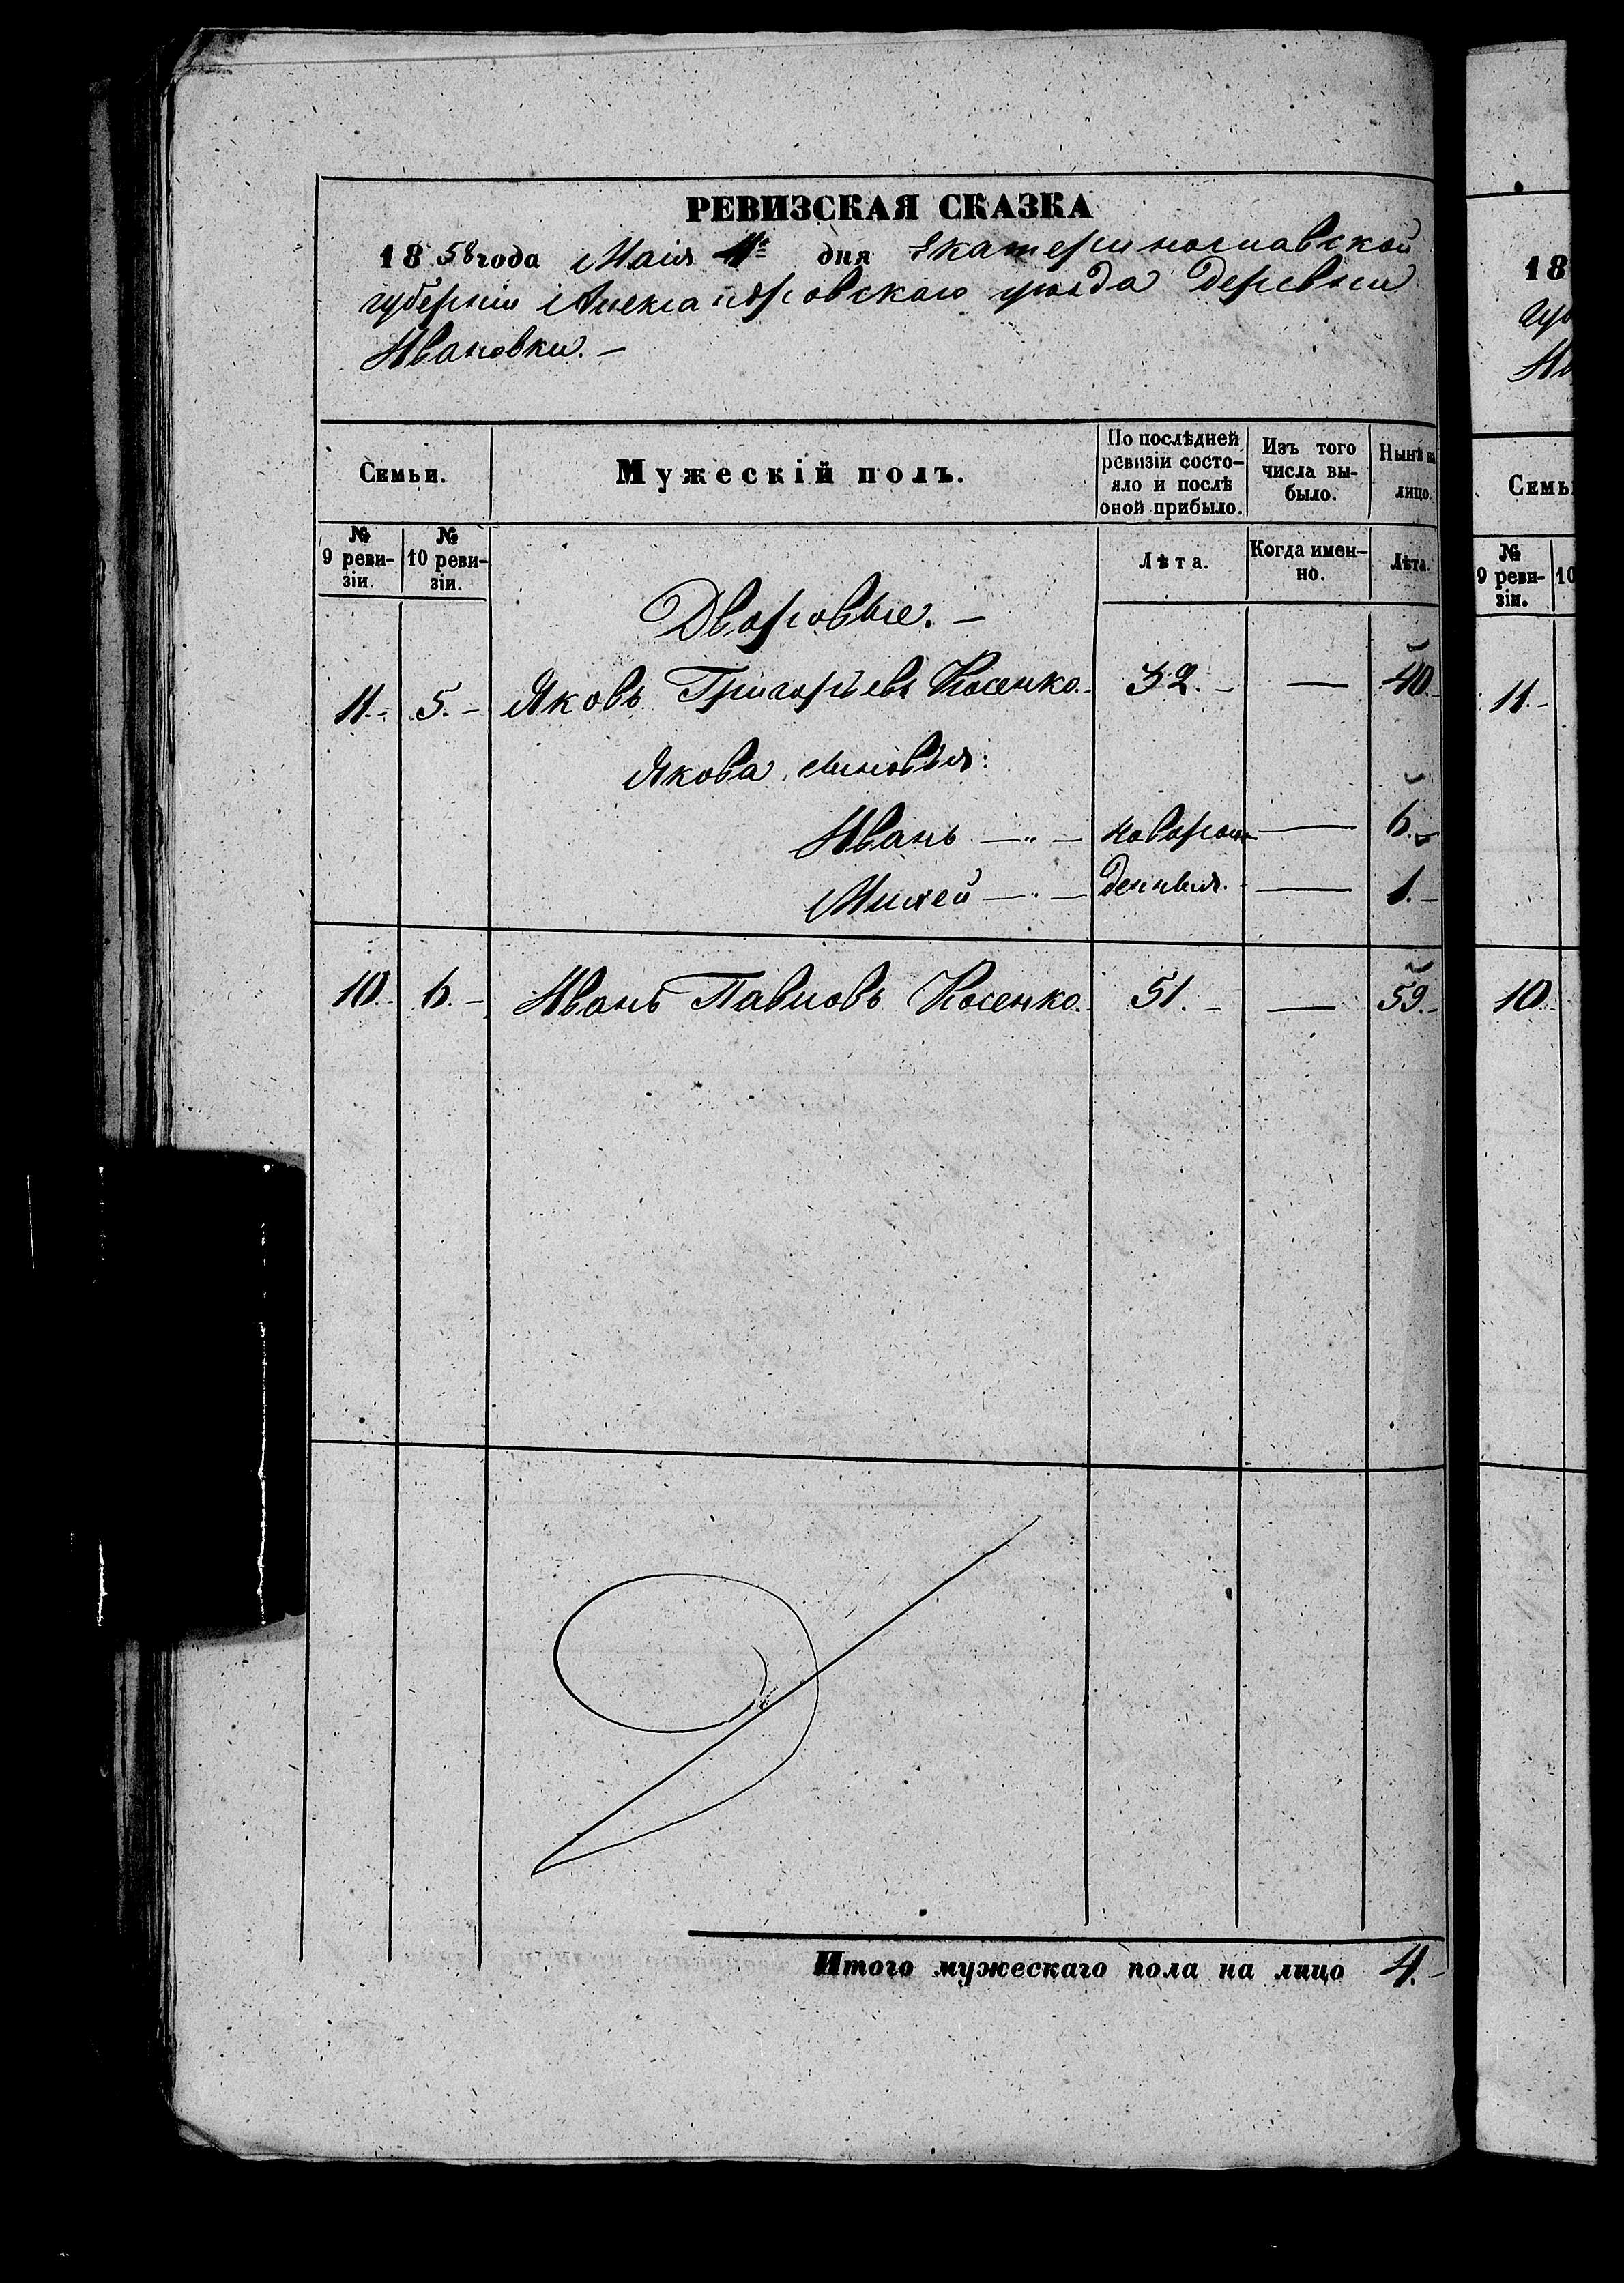 РЕВИЗСКАЯ СКАЗКА
1858 года Маія дня Екатеринославской
губерніи Александровскаго уѣзда деревни
Ивановки. —
Семьи. Мужескій полъ. По послѣдней ревизіи состояло и послѣ оной прибыло. Изъ того числа выбыло. Нынѣ на лицо.
№ 9 ревизіи. № 10 ревизіи. Лѣта. Когда именно. Лѣта.
Дворовые. —
11. — 5. — Яковъ Григорьевъ Косенко. 32. — — 40
Якова сыновья:
Иванъ — „ — новорож- — 6. —
Михей — „ — денныя. — 1. —
10. — 6. — Иванъ Павловъ Косенко. 51. — — 59. —
Итого мужескаго пола на лицо 4. —
18
Гу
Ив
Семь
№ 9 ревизіи. 10
11. —
10